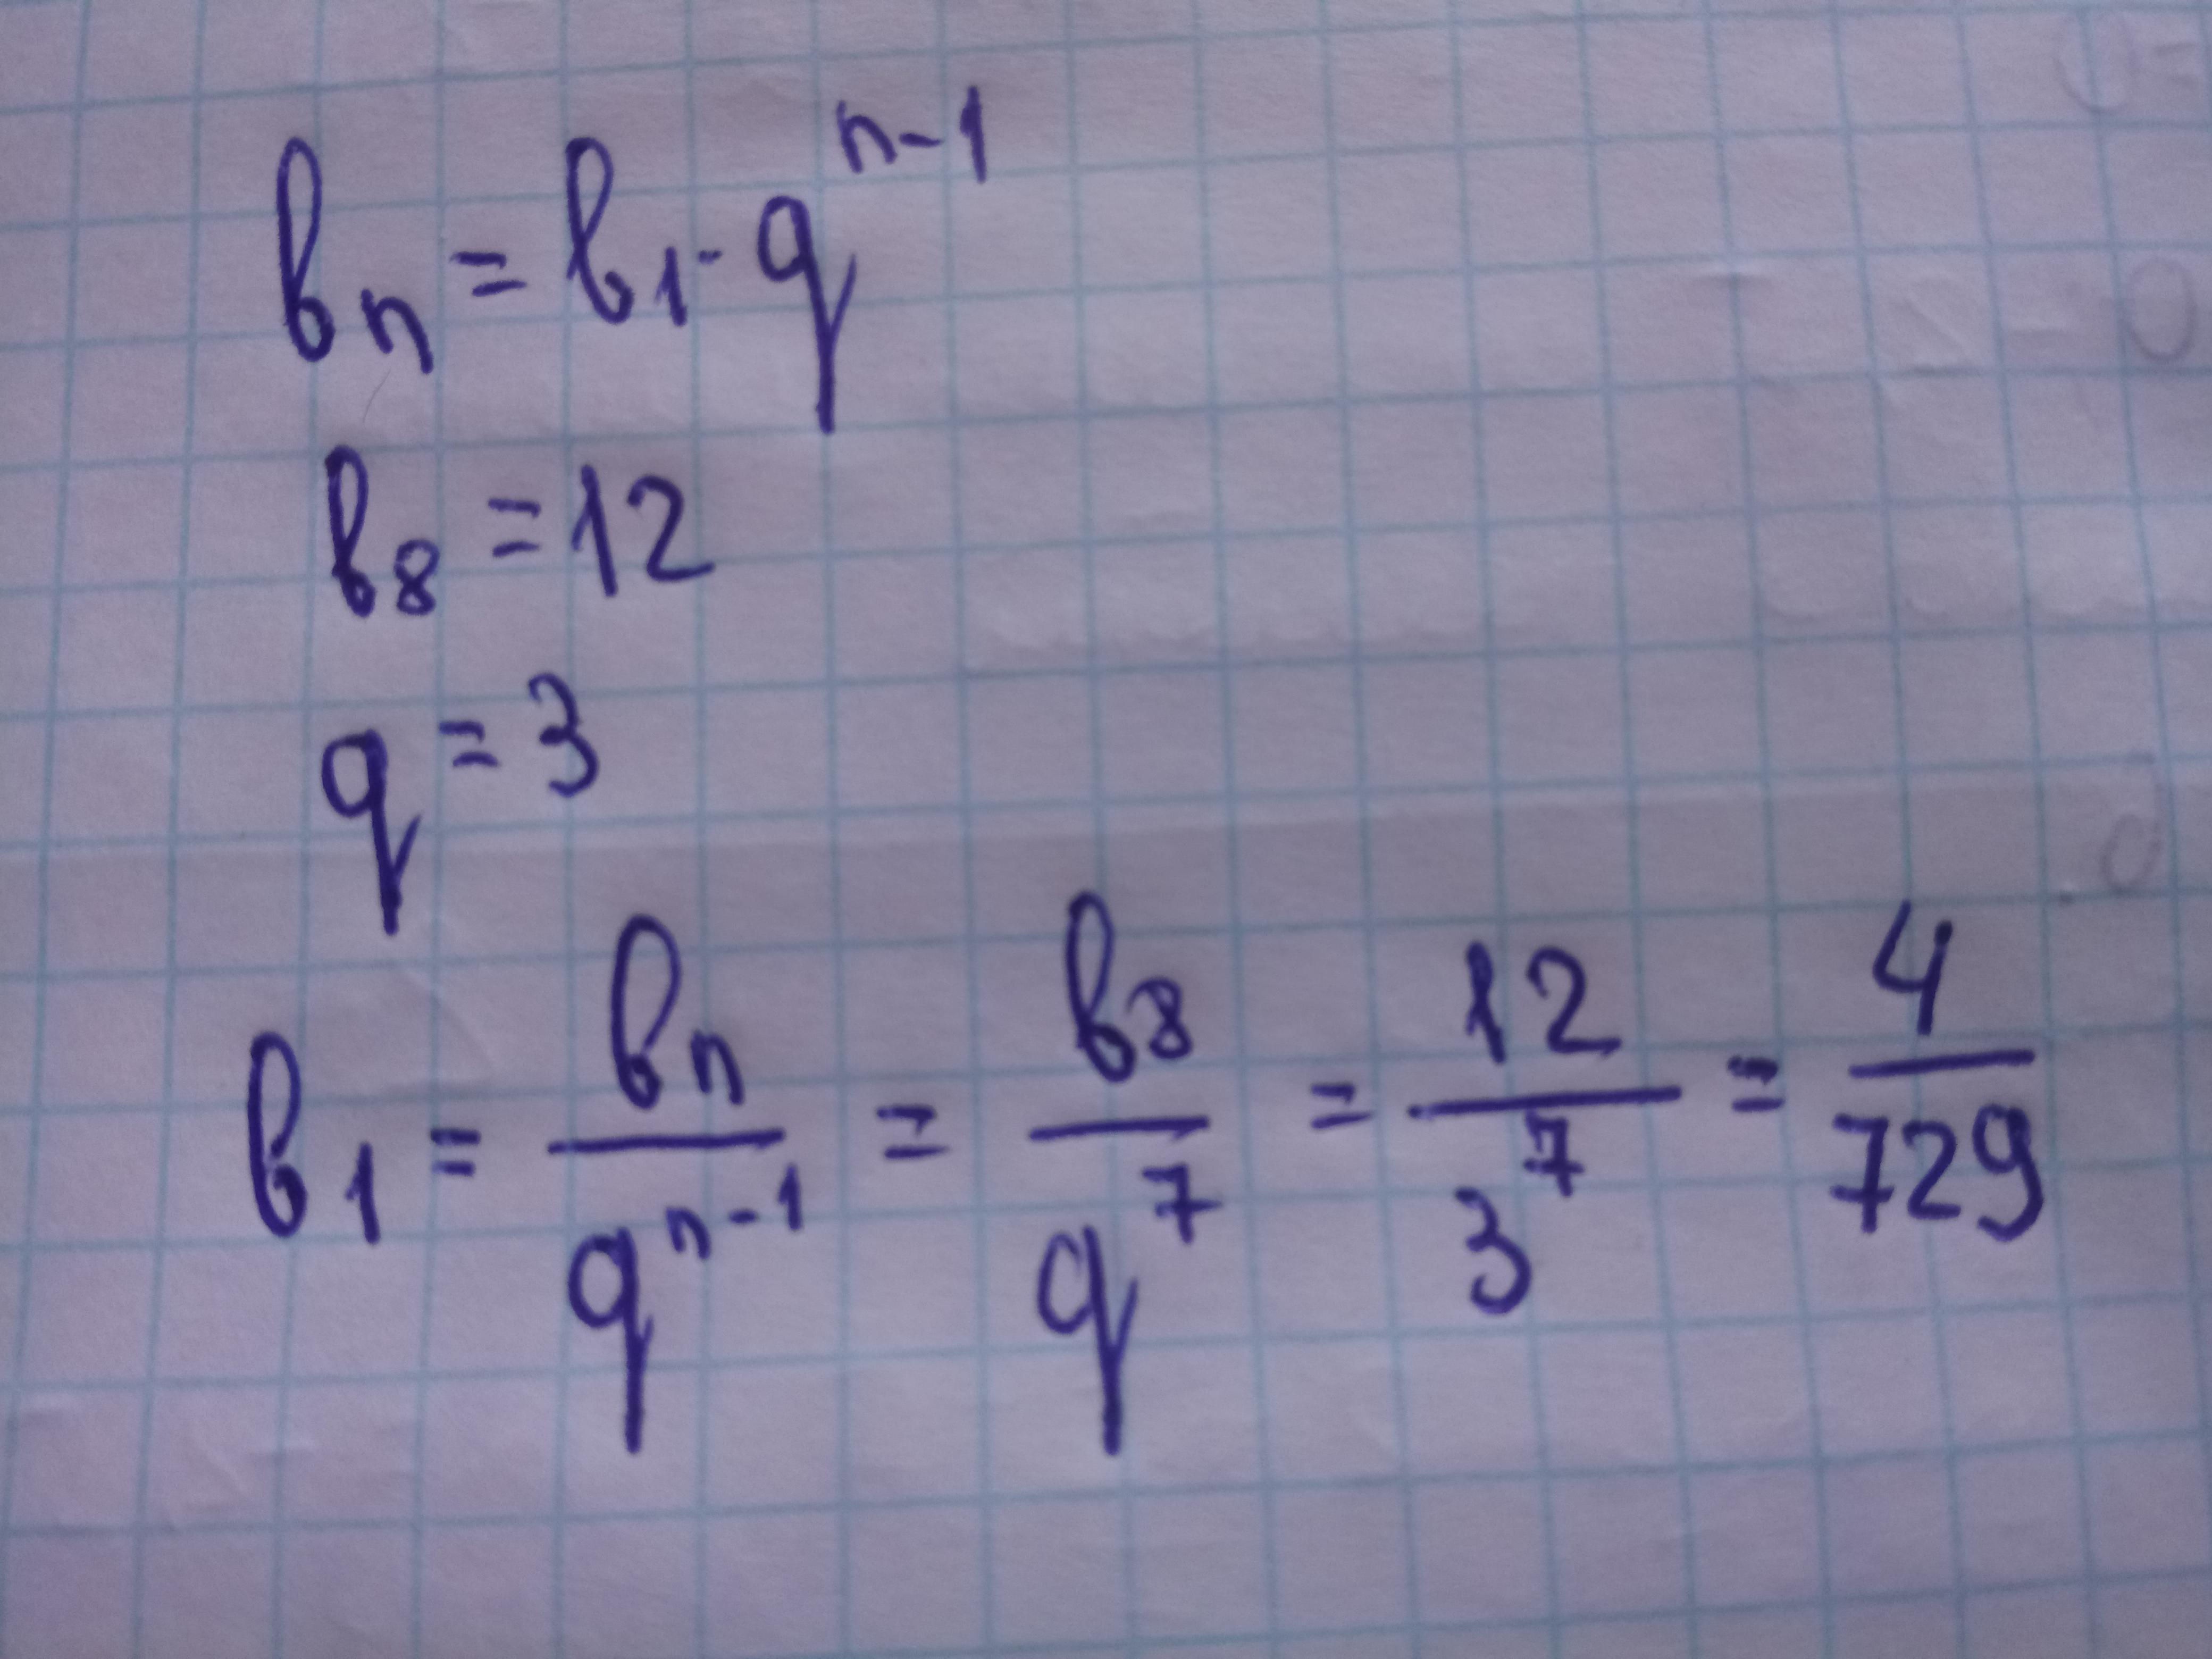 bₙ = b₁ · qⁿ⁻¹
b₈ = 12
q = 3
b₁ = bₙ / qⁿ⁻¹ = b₈ / q⁷ = 12 / 3⁷ = 4 / 729